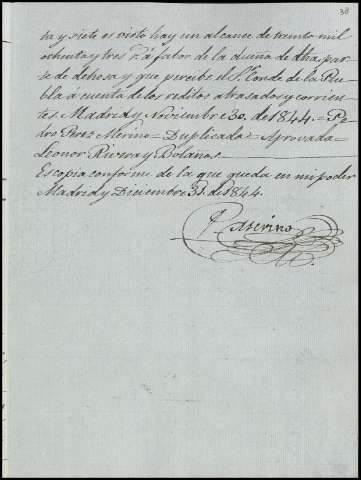 38
ta y siete es visto hay un alcance de treinta mil
ochenta y tres r.^s á fabor de la dueña de dha. par-
te de dehesa y que percibe el S.^r Conde de la Pue-
bla á cuenta de los reditos atrasados y corrien-
tes. Madrid y Noviembre 30. de 1844. = Pe-
dro Perez Merino = Duplicada = Aprovada =
Leonor Rivera y Bolaños.
Es copia conforme de la que queda en mi poder
Madrid y Diciembre 31. de 1844.
P. Merino